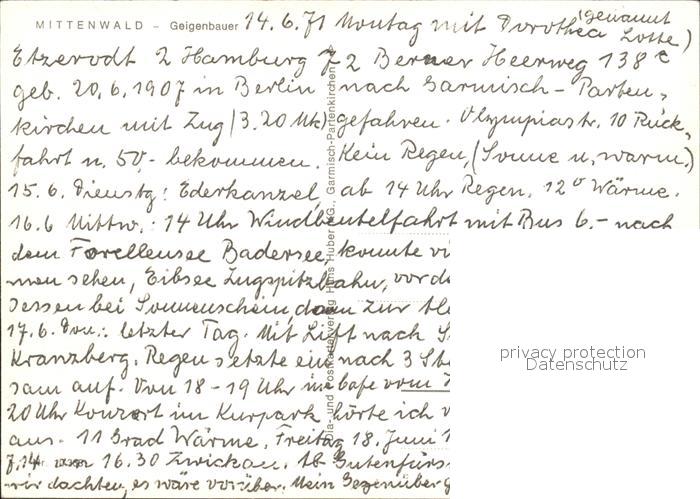 MITTENWALD – Geigenbauer 14.6.71 Montag mit Dorothea (genannt Lotte)
Etzerodt 2 Hamburg 72 Berner Heerweg 138c
geb. 20.6.1907 in Berlin nach Garmisch-Parten-
kirchen mit Zug (3.20 Mk) gefahren. Olympiastr. 10 Rück-
fahrt n. 50,- bekommen. Kein Regen, (Sonne u. warm.)
15.6. Dienstg: Ederkanzel, ab 14 Uhr Regen. 12° Wärme.
16.6 Mittw.: 14 Uhr Windbeutelfahrt mit Bus 6.- nach
dem Forellensee Badersee, konnte
men sehen, Eibsee Zugspitzbahn, vor
sessen bei Sonnenschein, dann zur
17.6. Don.: letzter Tag. Mit Lift nach
Kranzberg. Regen setzte ein nach 3
sam auf. Von 18-19 Uhr im Cafe vom
20 Uhr Konzert im Kurpark hörte ich
aus. 11 Grad Wärme. Freitag 18. Juni
7.14 16.30 Zwickau. 18 Gutenfürs
wir dachten, es wäre vorüber. Mein Gegenüber
Dia- und Postkartenverlag Hans Huber KG., Garmisch-Partenkirchen
privacy protection
Datenschutz